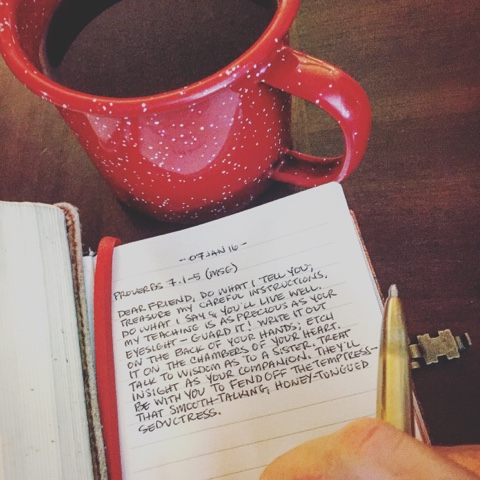 -07JAN16-
PROVERBS 7.1-5 (MSG)
DEAR FRIEND, DO WHAT I TELL YOU;
TREASURE MY CAREFUL INSTRUCTIONS.
DO WHAT I SAY & YOU'LL LIVE WELL.
MY TEACHING IS AS PRECIOUS AS YOUR
EYESIGHT - GUARD IT! WRITE IT OUT
ON THE BACK OF YOUR HANDS; ETCH
IT ON THE CHAMBERS OF YOUR HEART.
TALK TO WISDOM AS TO A SISTER. TREAT
INSIGHT AS YOUR COMPANION. THEY'LL
BE WITH YOU TO FEND OFF THE TEMPTRESS-
THAT SMOOTH-TALKING, HONEY-TONGUED
SEDUCTRESS.